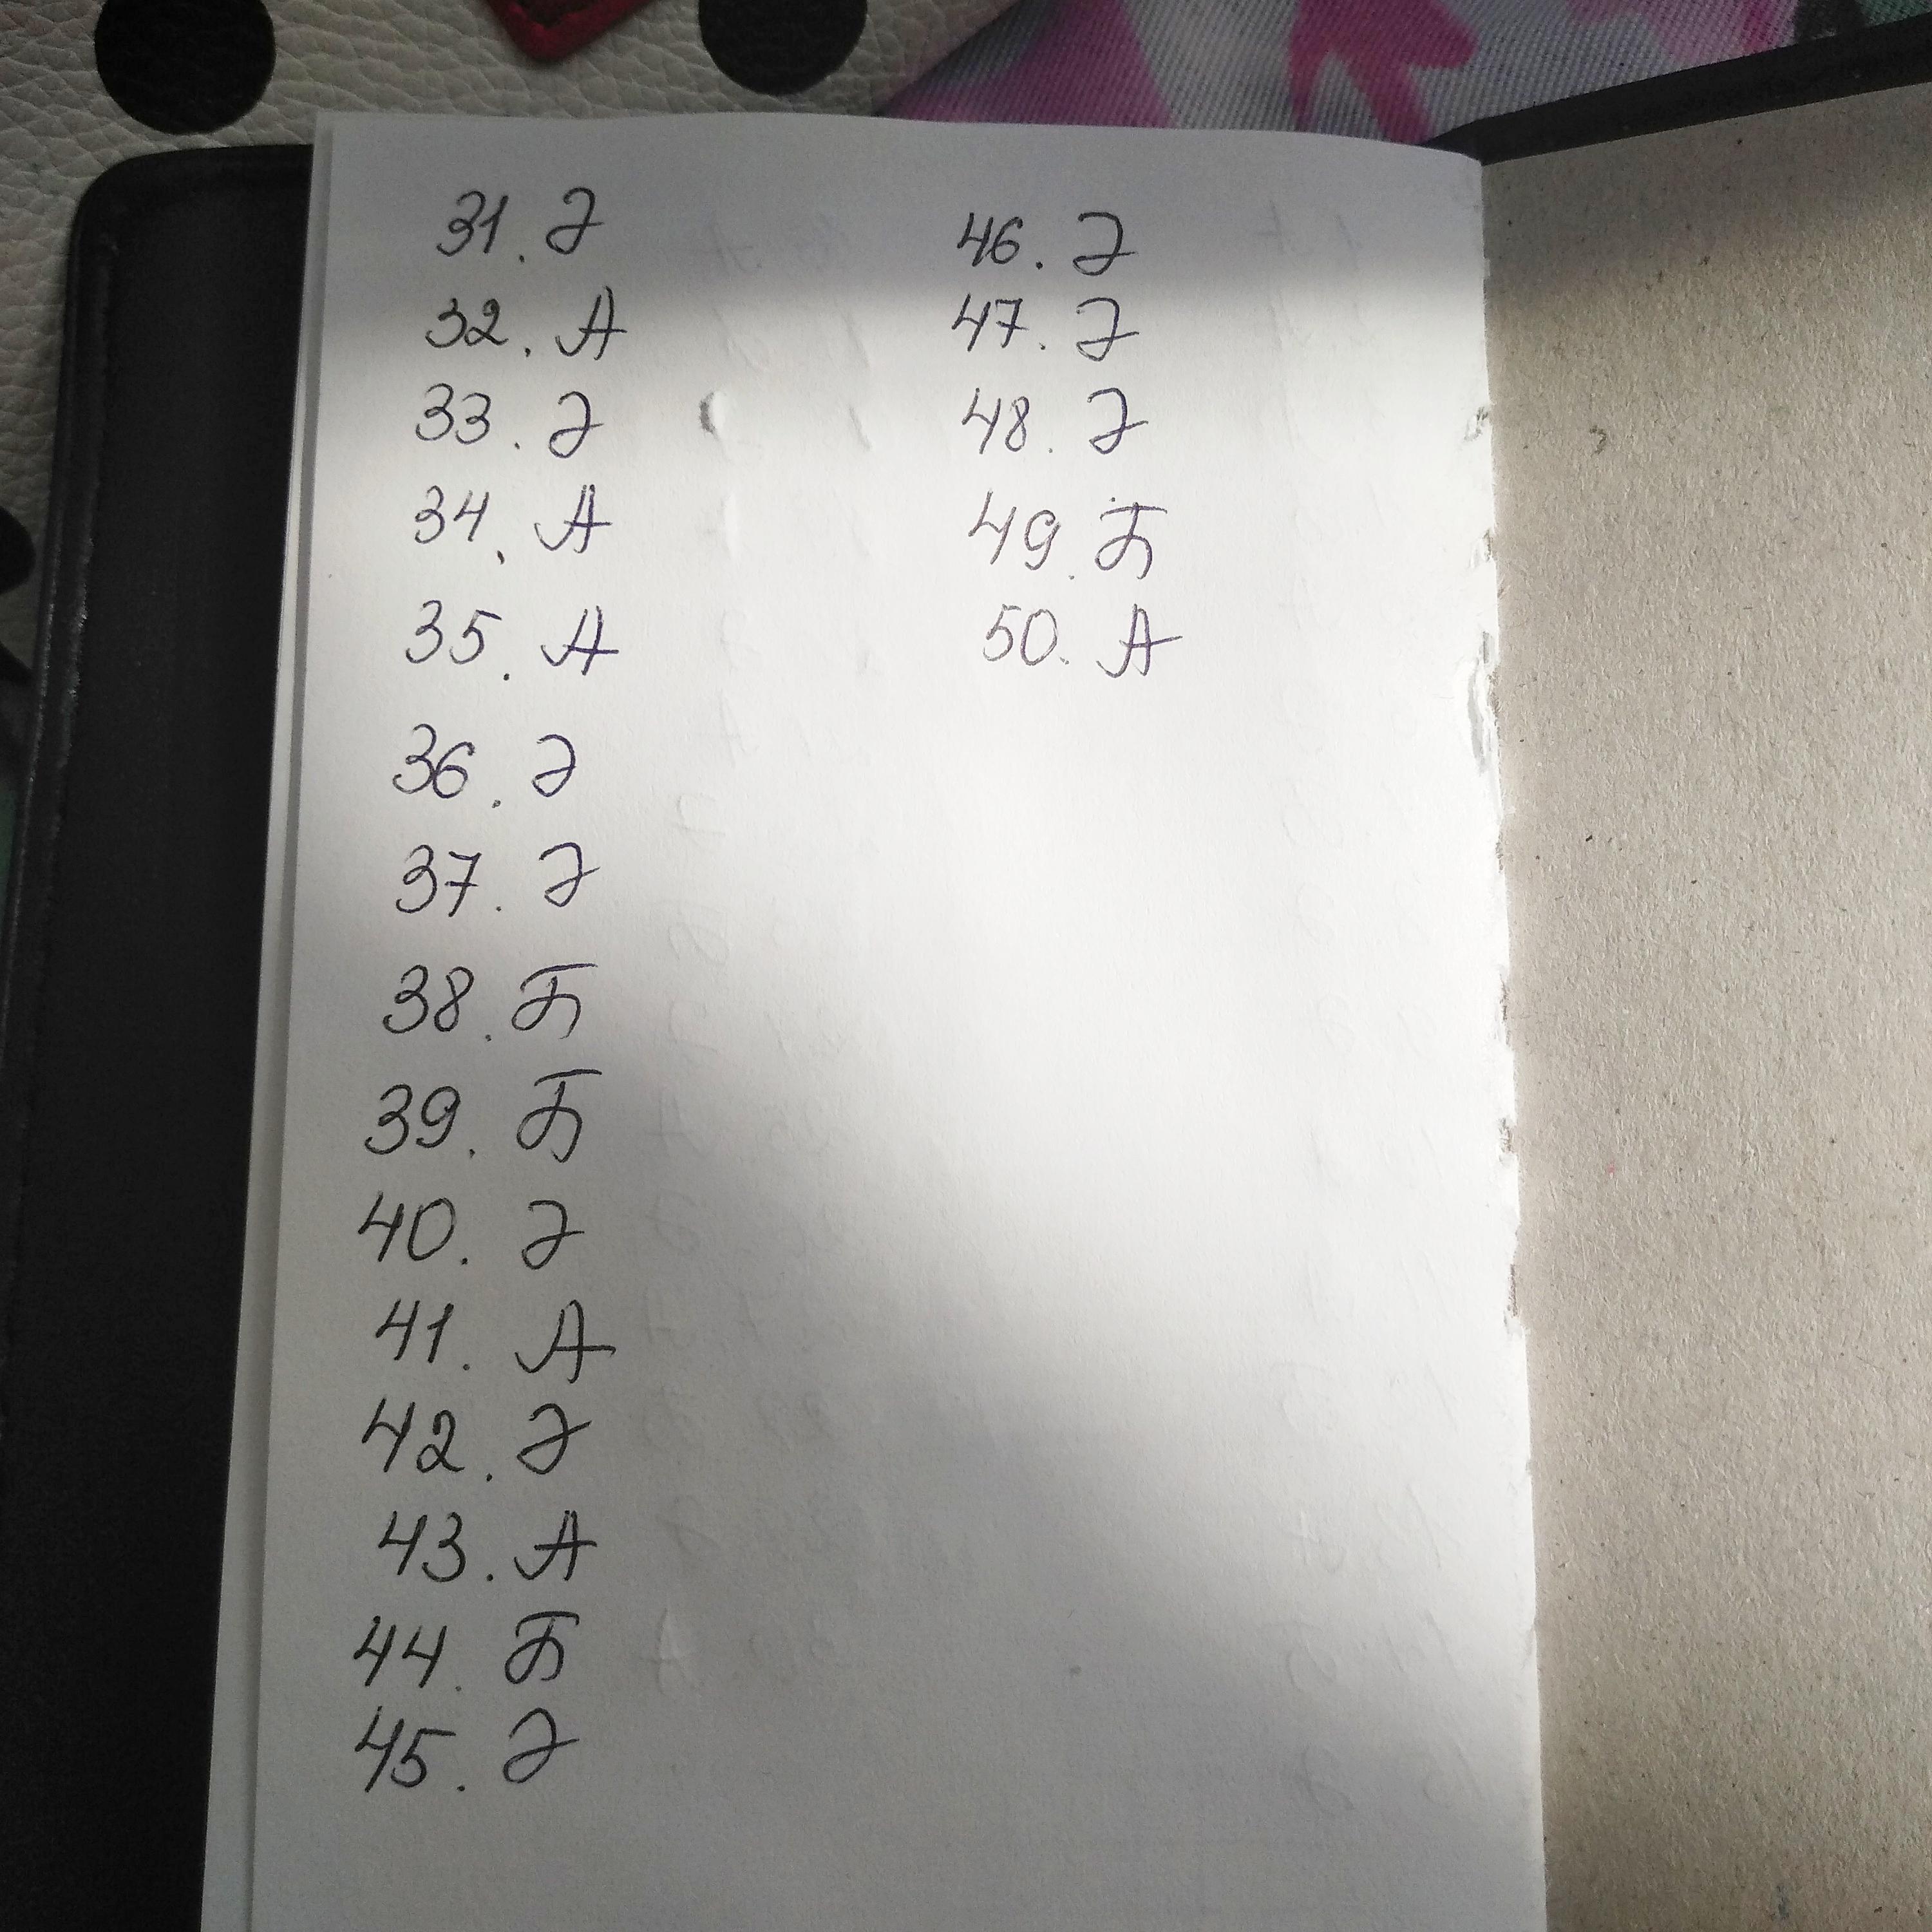 31. Ә
32. А
33. Ә
34. А
35. А
36. Ә
37. Ә
38. Б
39. Б
40. Ә
41. А
42. Ә
43. А
44. Б
45. Ә
46. Ә
47. Ә
48. Ә
49. Б
50. А